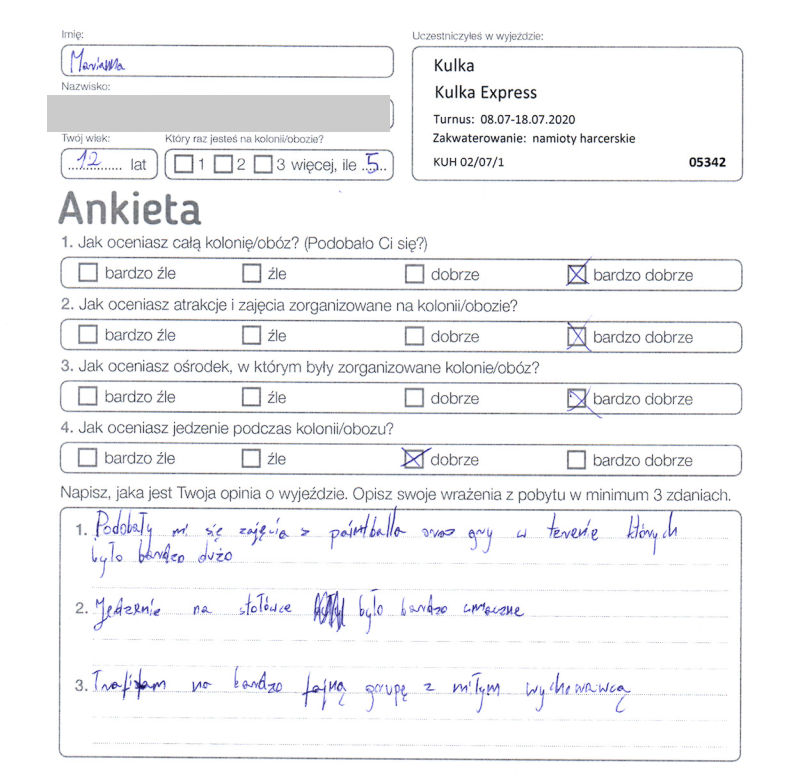 Imię:
Marianna
Uczestniczyłeś w wyjeździe:
Kulka
Kulka Express
Turnus: 08.07-18.07.2020
Zakwaterowanie: namioty harcerskie
KUH 02/07/1 05342
Nazwisko:
Twój wiek:
12 lat
Który raz jesteś na kolonii/obozie?
1 2 3 więcej, ile 5
Ankieta
1. Jak oceniasz całą kolonię/obóz? (Podobało Ci się?)
bardzo źle źle dobrze bardzo dobrze
2. Jak oceniasz atrakcje i zajęcia zorganizowane na kolonii/obozie?
bardzo źle źle dobrze bardzo dobrze
3. Jak oceniasz ośrodek, w którym były zorganizowane kolonie/obóz?
bardzo źle źle dobrze bardzo dobrze
4. Jak oceniasz jedzenie podczas kolonii/obozu?
bardzo źle źle dobrze bardzo dobrze
Napisz, jaka jest Twoja opinia o wyjeździe. Opisz swoje wrażenia z pobytu w minimum 3 zdaniach.
1. Podobały mi się zajęcia z paintballa oraz gry w terenie których
było bardzo dużo
2. Jedzenie na stołówce było bardzo smaczne
3. Trafiłam na bardzo fajną grupę z miłym wychowawcą